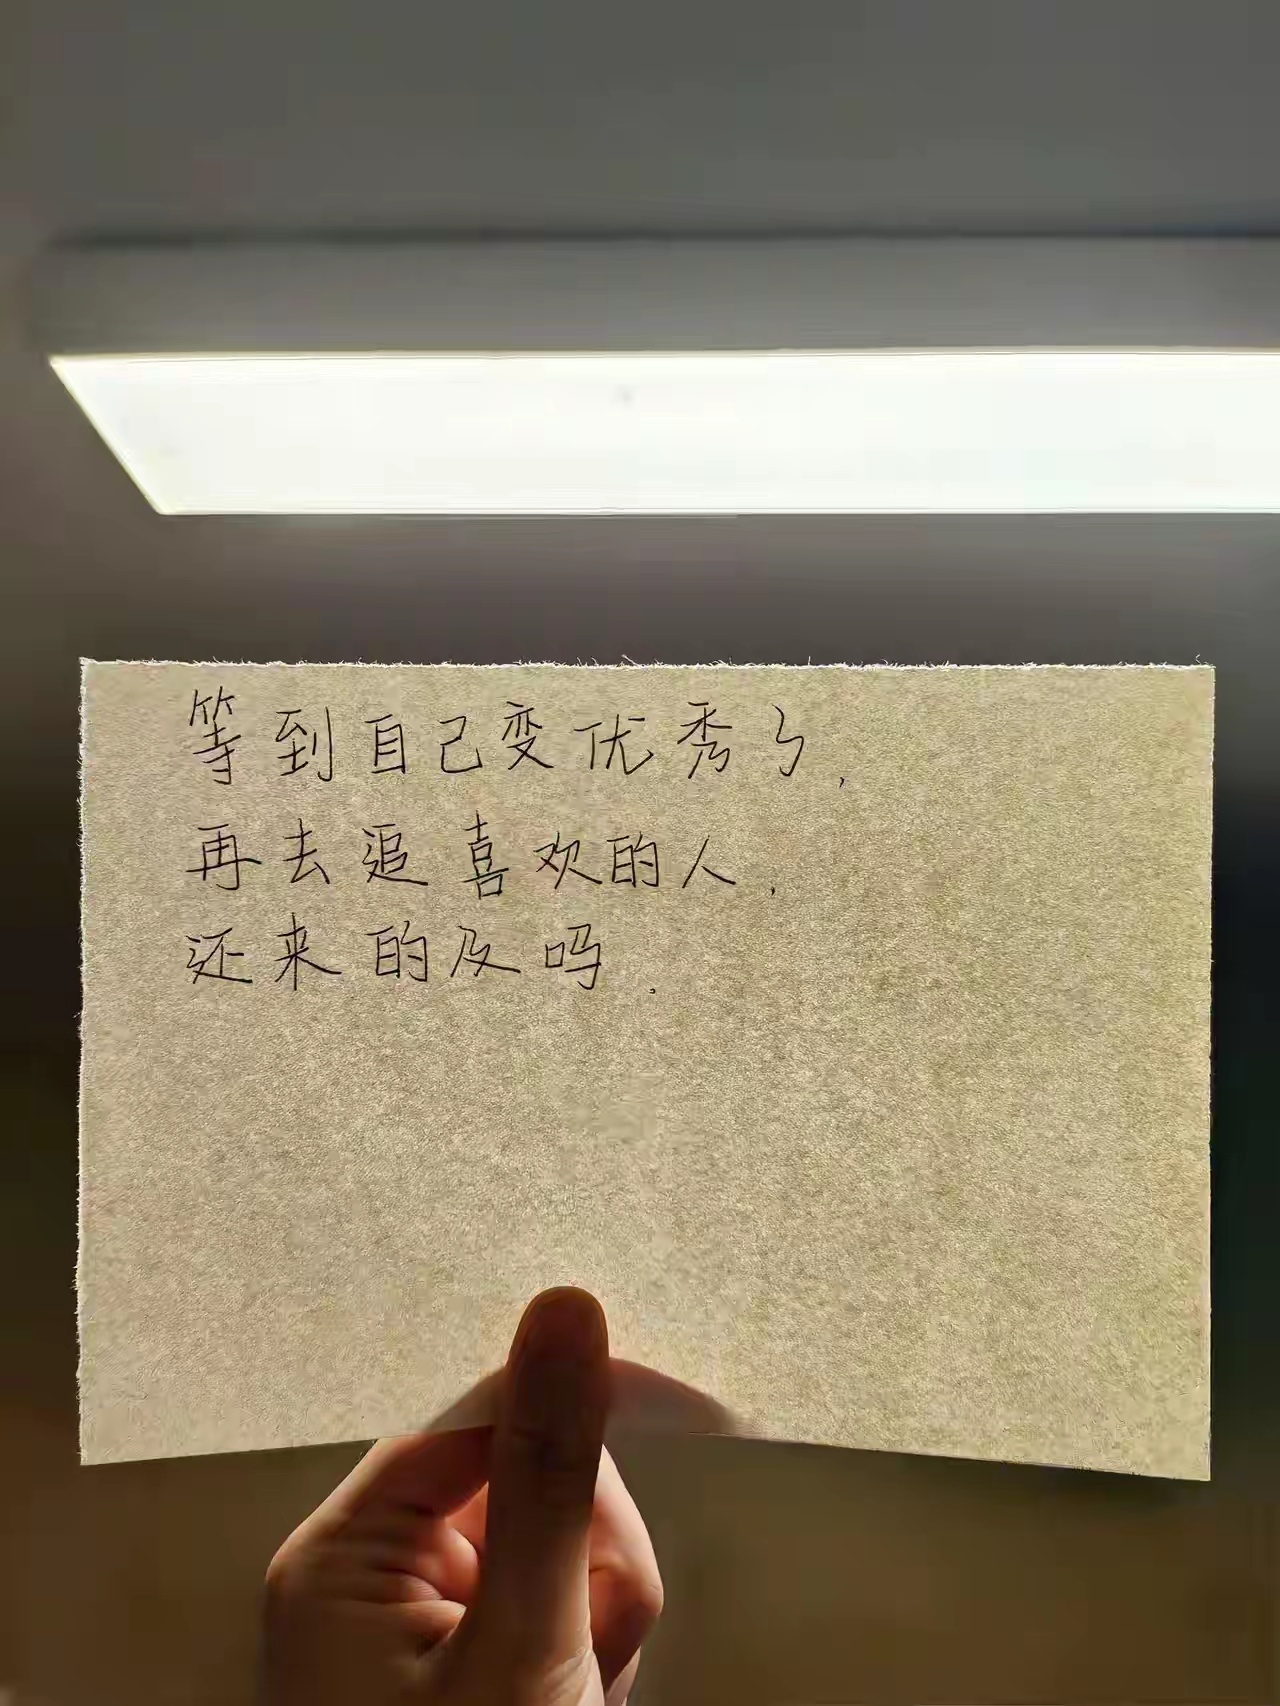 等到自己变优秀了，
再去追喜欢的人，
还来的及吗。